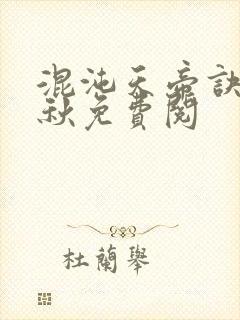 混沌天帝訣
秋免費閱
杜蘭舉